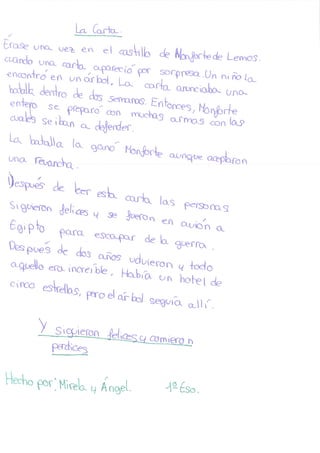 La Carta.
Erase una vez en el castillo de Monforte de Lemos.
cuando una carta apareció por sorpresa. Un niño la
encontró en un árbol. La carta anunciaba una
batalla dentro de dos semanas. Entonces, Monforte
entero se preparó con muchas armas con las
cuales se iban a defender.
La batalla la ganó Monforte aunque aceptaron
una revancha.
Después de leer esta carta las personas
siguieron felices y se fueron en avión a
Egipto para escapar de la guerra.
Después de dos años volvieron y todo
aquello era increíble. Había un hotel de
cinco estrellas, pero el árbol seguía allí.
Y siguieron felices y comieron
perdices
Hecho por: Mirela y Ángel. 1º Eso.